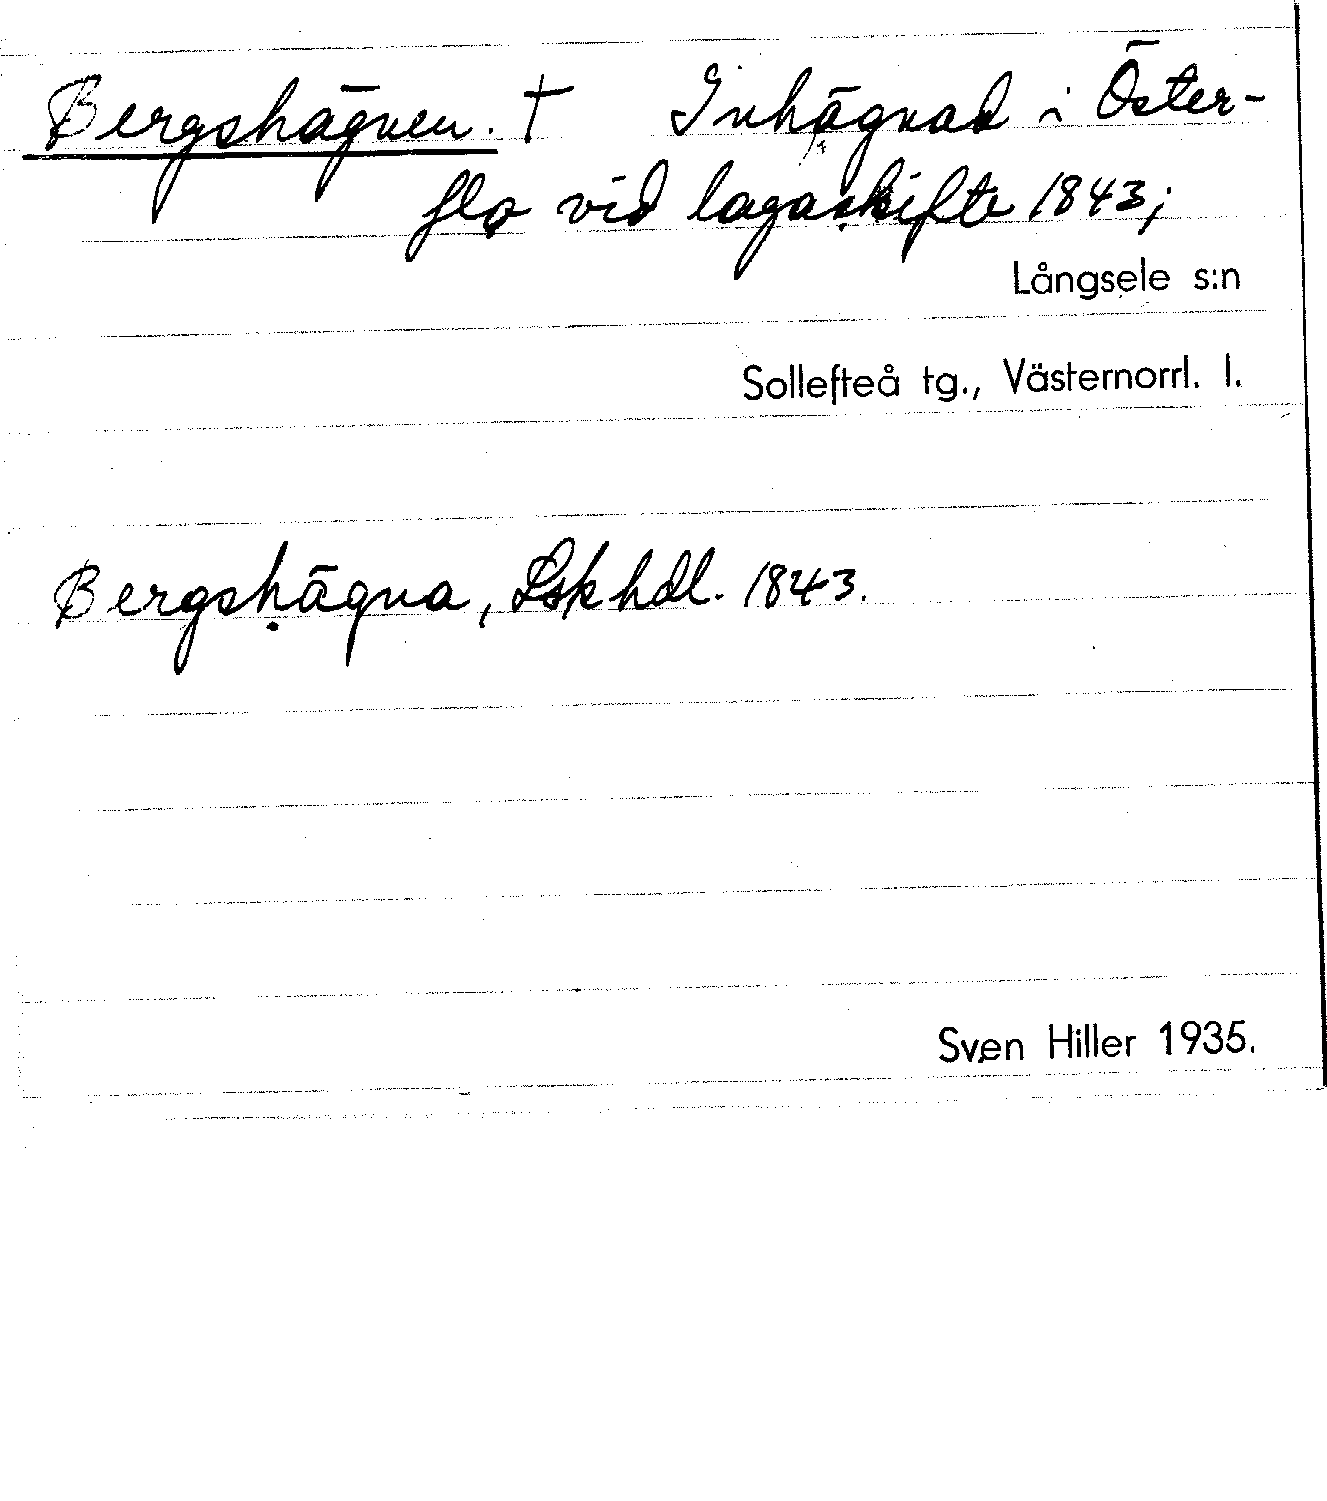 Bergshägnen. † Inhägnad i Öster-
flo vid lagaskifte 1843;
Långsele s:n
Sollefteå tg., Västernorrl. l.
Bergshägna, Lsk hdl. 1843.
Sven Hiller 1935.